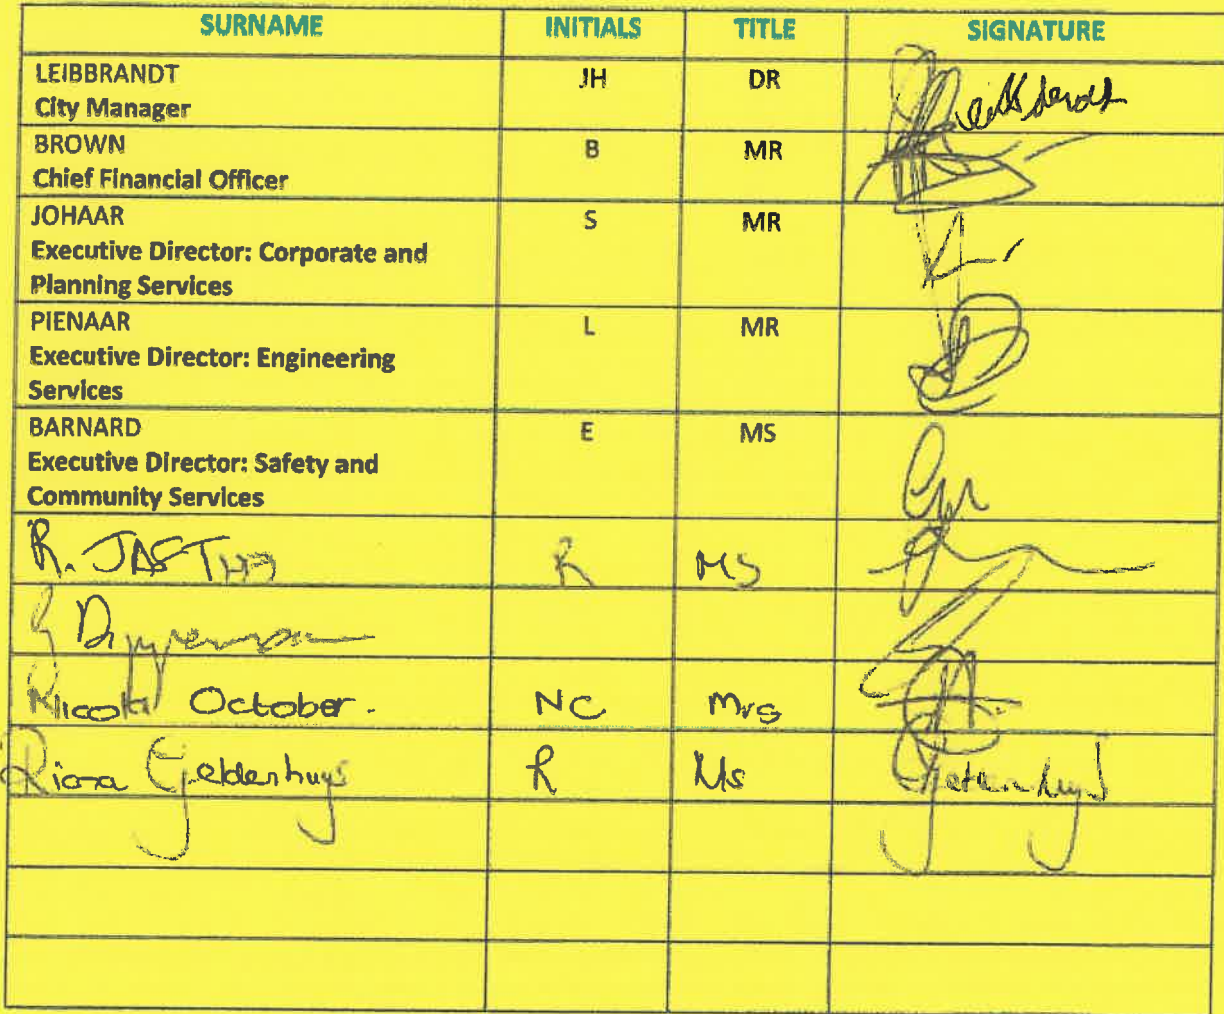 SURNAME INITIALS TITLE SIGNATURE
LEIBBRANDT JH DR
City Manager
BROWN B MR
Chief Financial Officer
JOHAAR S MR
Executive Director: Corporate and
Planning Services
PIENAAR L MR
Executive Director: Engineering
Services
BARNARD E MS
Executive Director: Safety and
Community Services
R. JASTHA R MS
Nicola October. NC Mrs
Riana Geldenhuys R Ms Geldenhuys